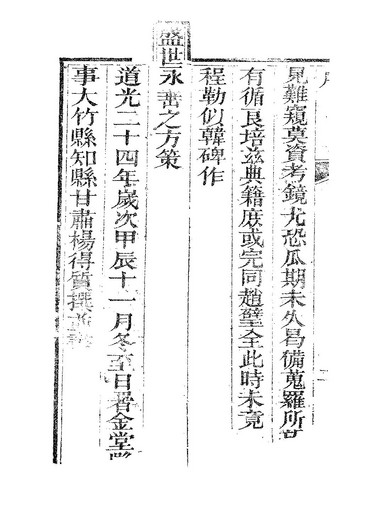 見難窺莫資考鏡尤恐瓜期未久曷備蒐羅所冀
有循良培茲典籍庶或完同趙璧全此時未竟
程勒似韓碑作
盛世永垂之方策
道光二十四年歲次甲辰十一月冬至日署金堂縣
事大竹縣知縣甘肅楊得質撰